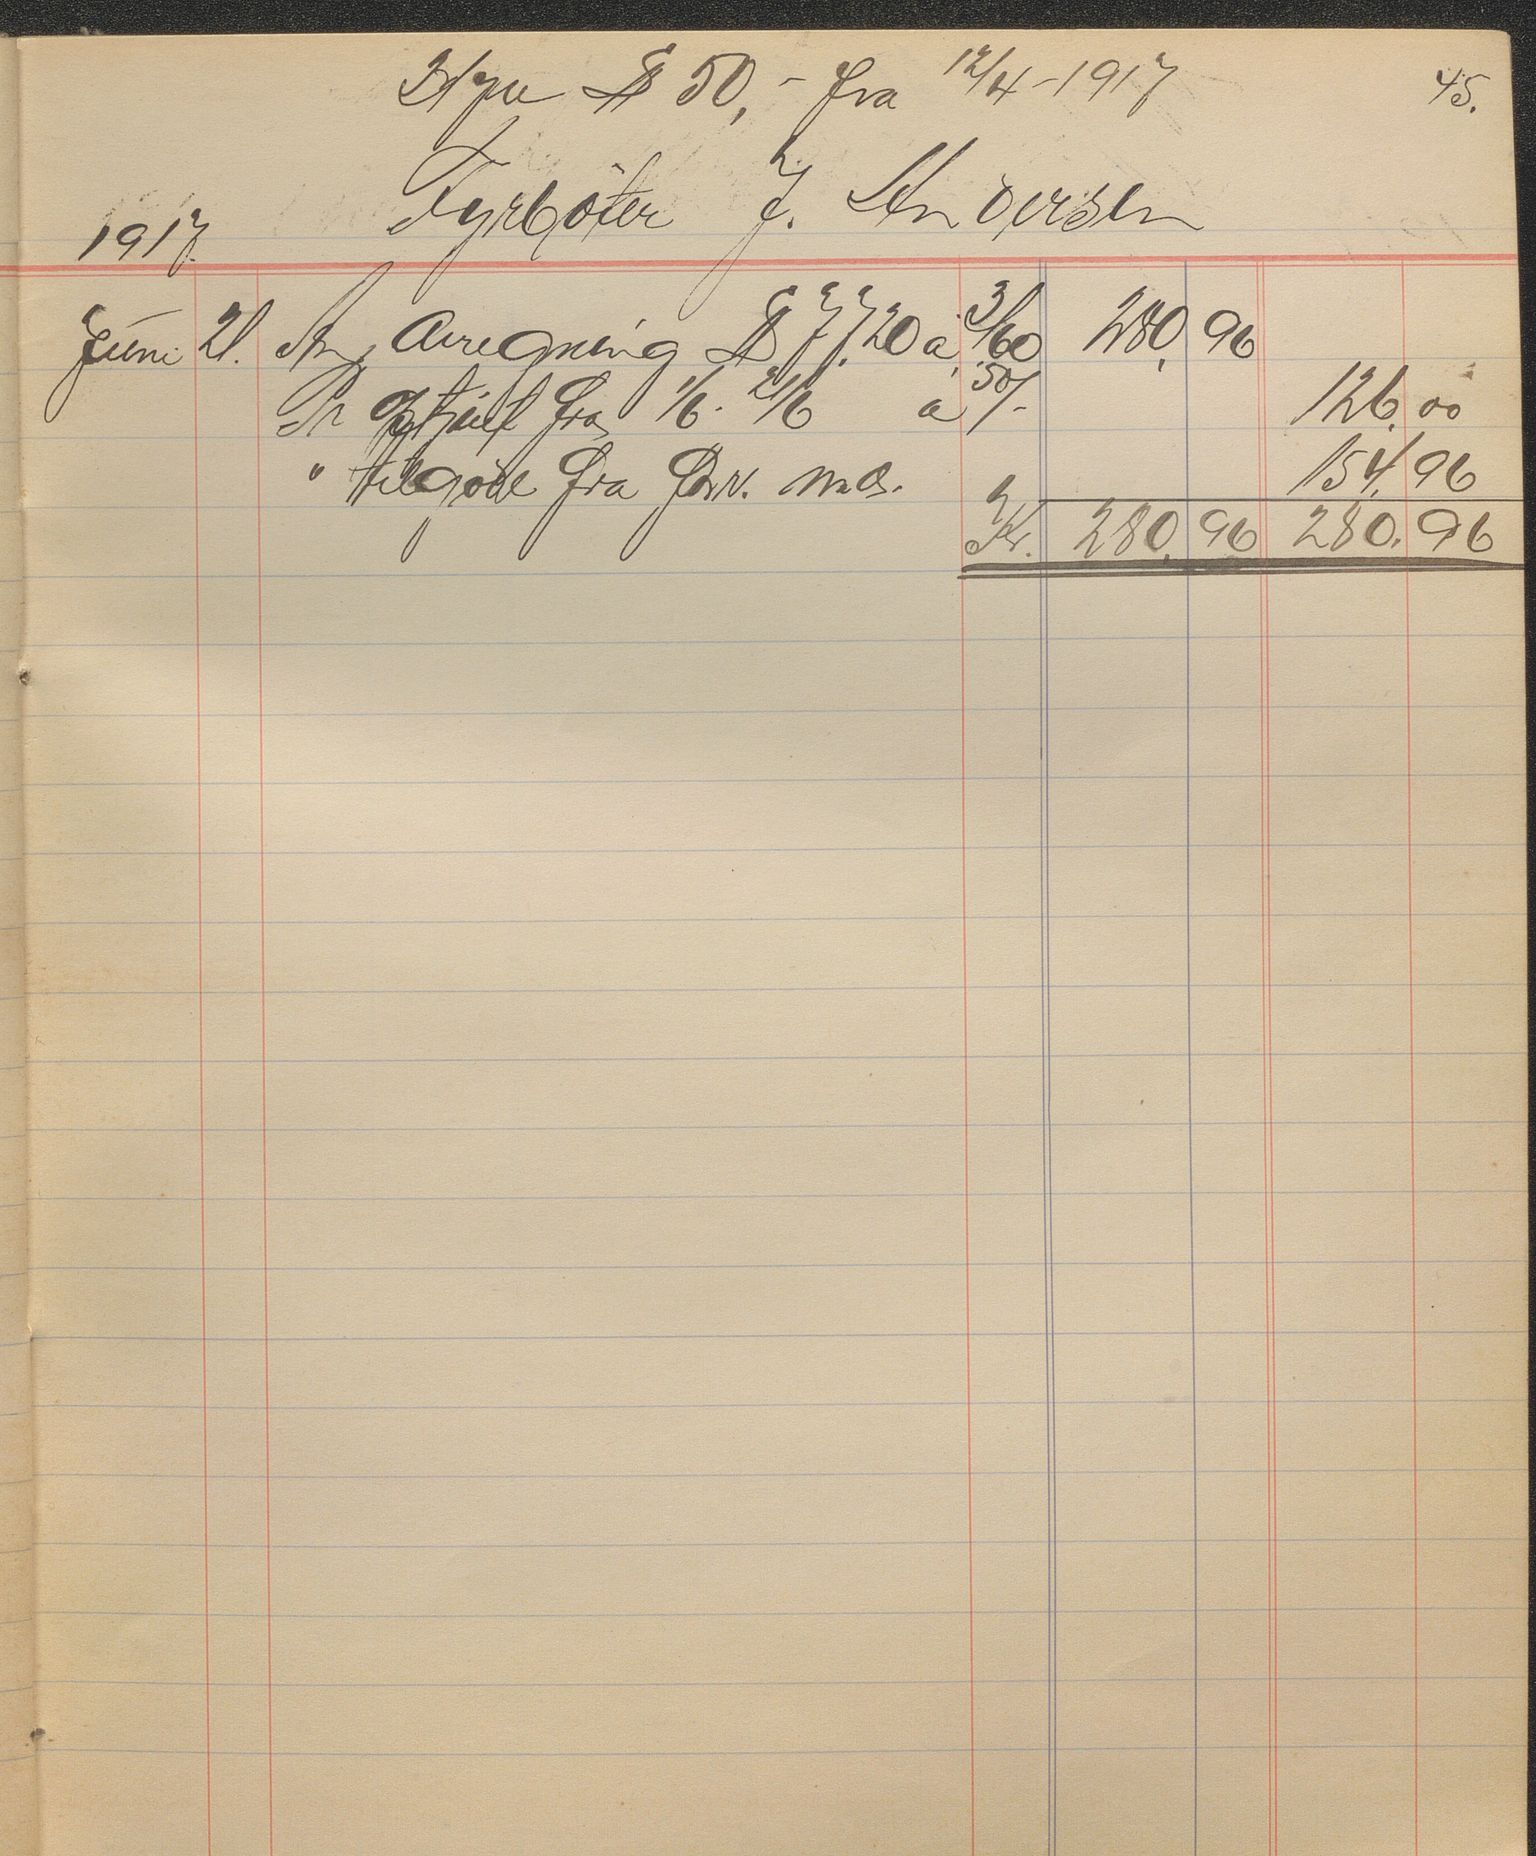 Hyre $ 50,- fra 12/4-1917
45.
Fyrbøter J. Andersen
1917.
Juni 21. An Avregning $ 77,20 à 3/60 280,96
Pr optjent fra 1/6 - 21/6 à 50/- 126,00
" tilgode fra forr. md. 154,96
Kr. 280,96 280,96